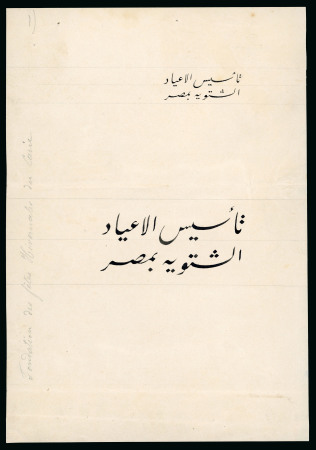 تأسيس الاعياد
الشتويه بمصر
تأسيس الاعياد
الشتويه بمصر
Fondation des fêtes Hivernales du Caire